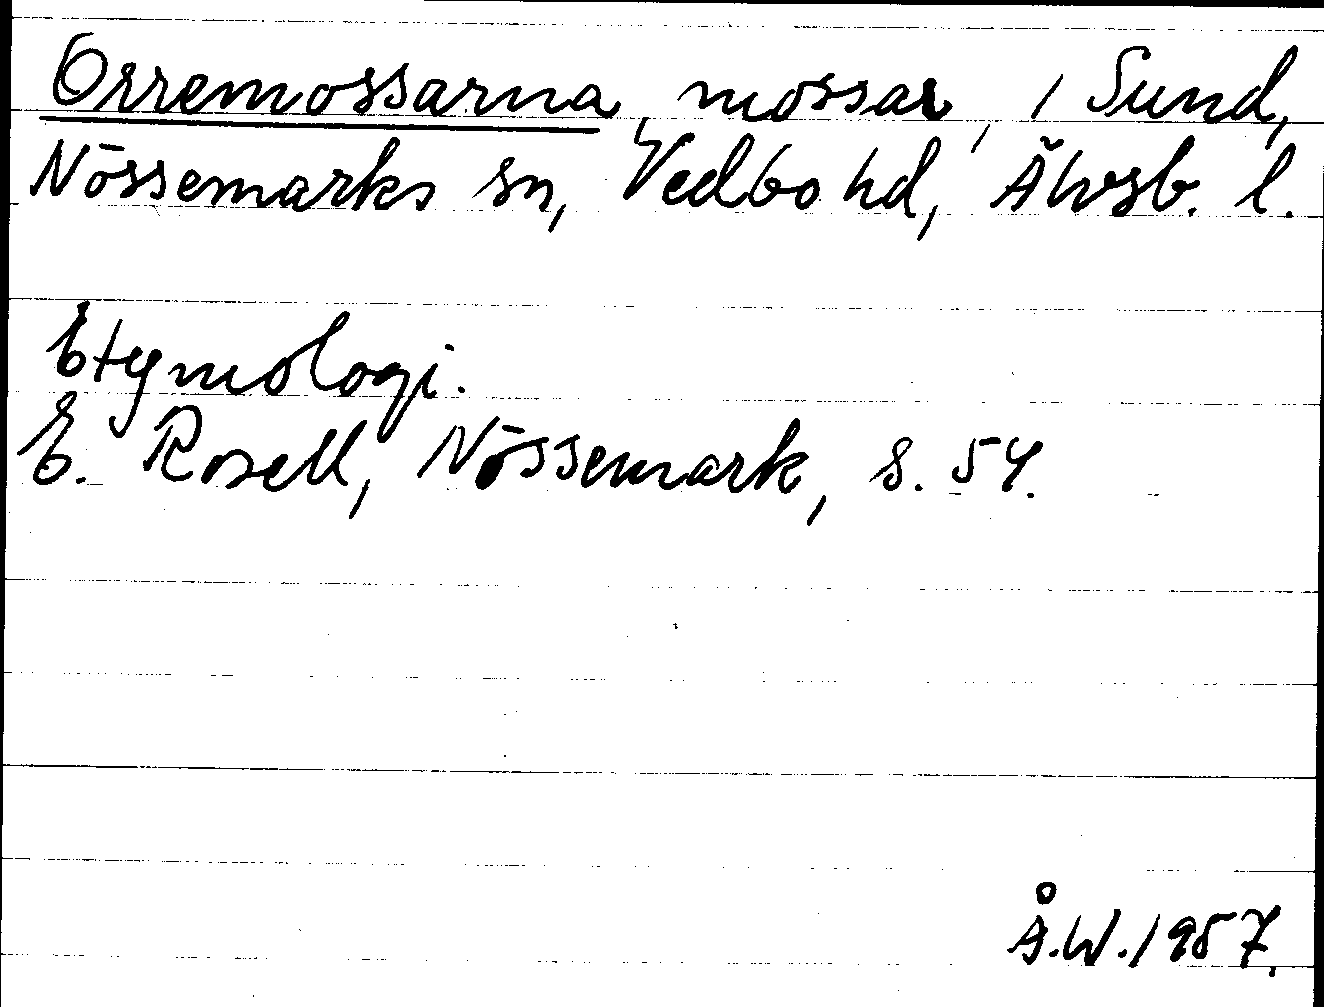 Orremossarna, mossar, i Sund,
Nössemarks sn, Vedbo hd, Älvsb. l.
Etymologi.
E. Rosell, Nössemark, s. 54.
Å.W. 1957.